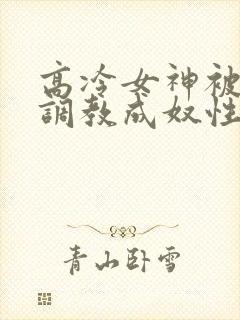 高冷女神被
調教成奴性
青山卧雪